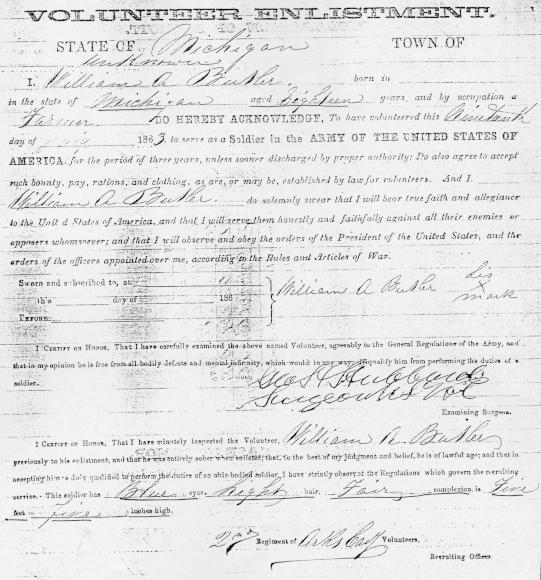 VOLUNTEER ENLISTMENT.
STATE OF Michigan TOWN OF
unknown
I, William A Butler. born in
in the state of Michigan aged Eighteen years, and by occupation a
Farmer DO HEREBY ACKNOWLEDGE, To have volunteered this
day of 1863, to serve as a Soldier in the ARMY OF THE UNITED STATES OF
AMERICA, for the period of three years, unless sooner discharged by proper authority: Do also agree to accept
such bounty, pay, rations, and clothing, as are, or may be, established by law for volunteers. And I
William A Butler. do solemnly swear that I will bear true faith and allegiance
to the Unit d States of America, and that I will serve them honestly and faithfully against all their enemies or
opposers whomsoever; and that I will observe and obey the orders of the President of the United States, and the
orders of the officers appointed over me, according to the Rules and Articles of War.
Sworn and subscribed to, at
this day of 186
BEFORE
William A Butler his
x
mark
I CERTIFY ON HONOR, That I have carefully examined the above named Volunteer, agreeably to the General Regulations of the Army, and
that in my opinion he is free from all bodily defects and mental infirmity, which would in any way disqualify him from performing the duties of a
soldier.
Geo S Hubbard
Surgeon Vol
Examining Surgeon.
I CERTIFY ON HONOR, That I have minutely inspected the Volunteer, William A. Butler
previously to his enlistment, and that he was entirely sober when enlisted; that, to the best of my judgment and belief, he is of lawful age; and that in
accepting him as duly qualified to perform the duties of an able-bodied soldier, I have strictly observed the Regulations which govern the recruiting
service. This soldier has Blue eyes, Light hair, Fair complexion, is Five
feet Five inches high.
2nd Regiment of Arks Cav Volunteers,
Recruiting Officer.